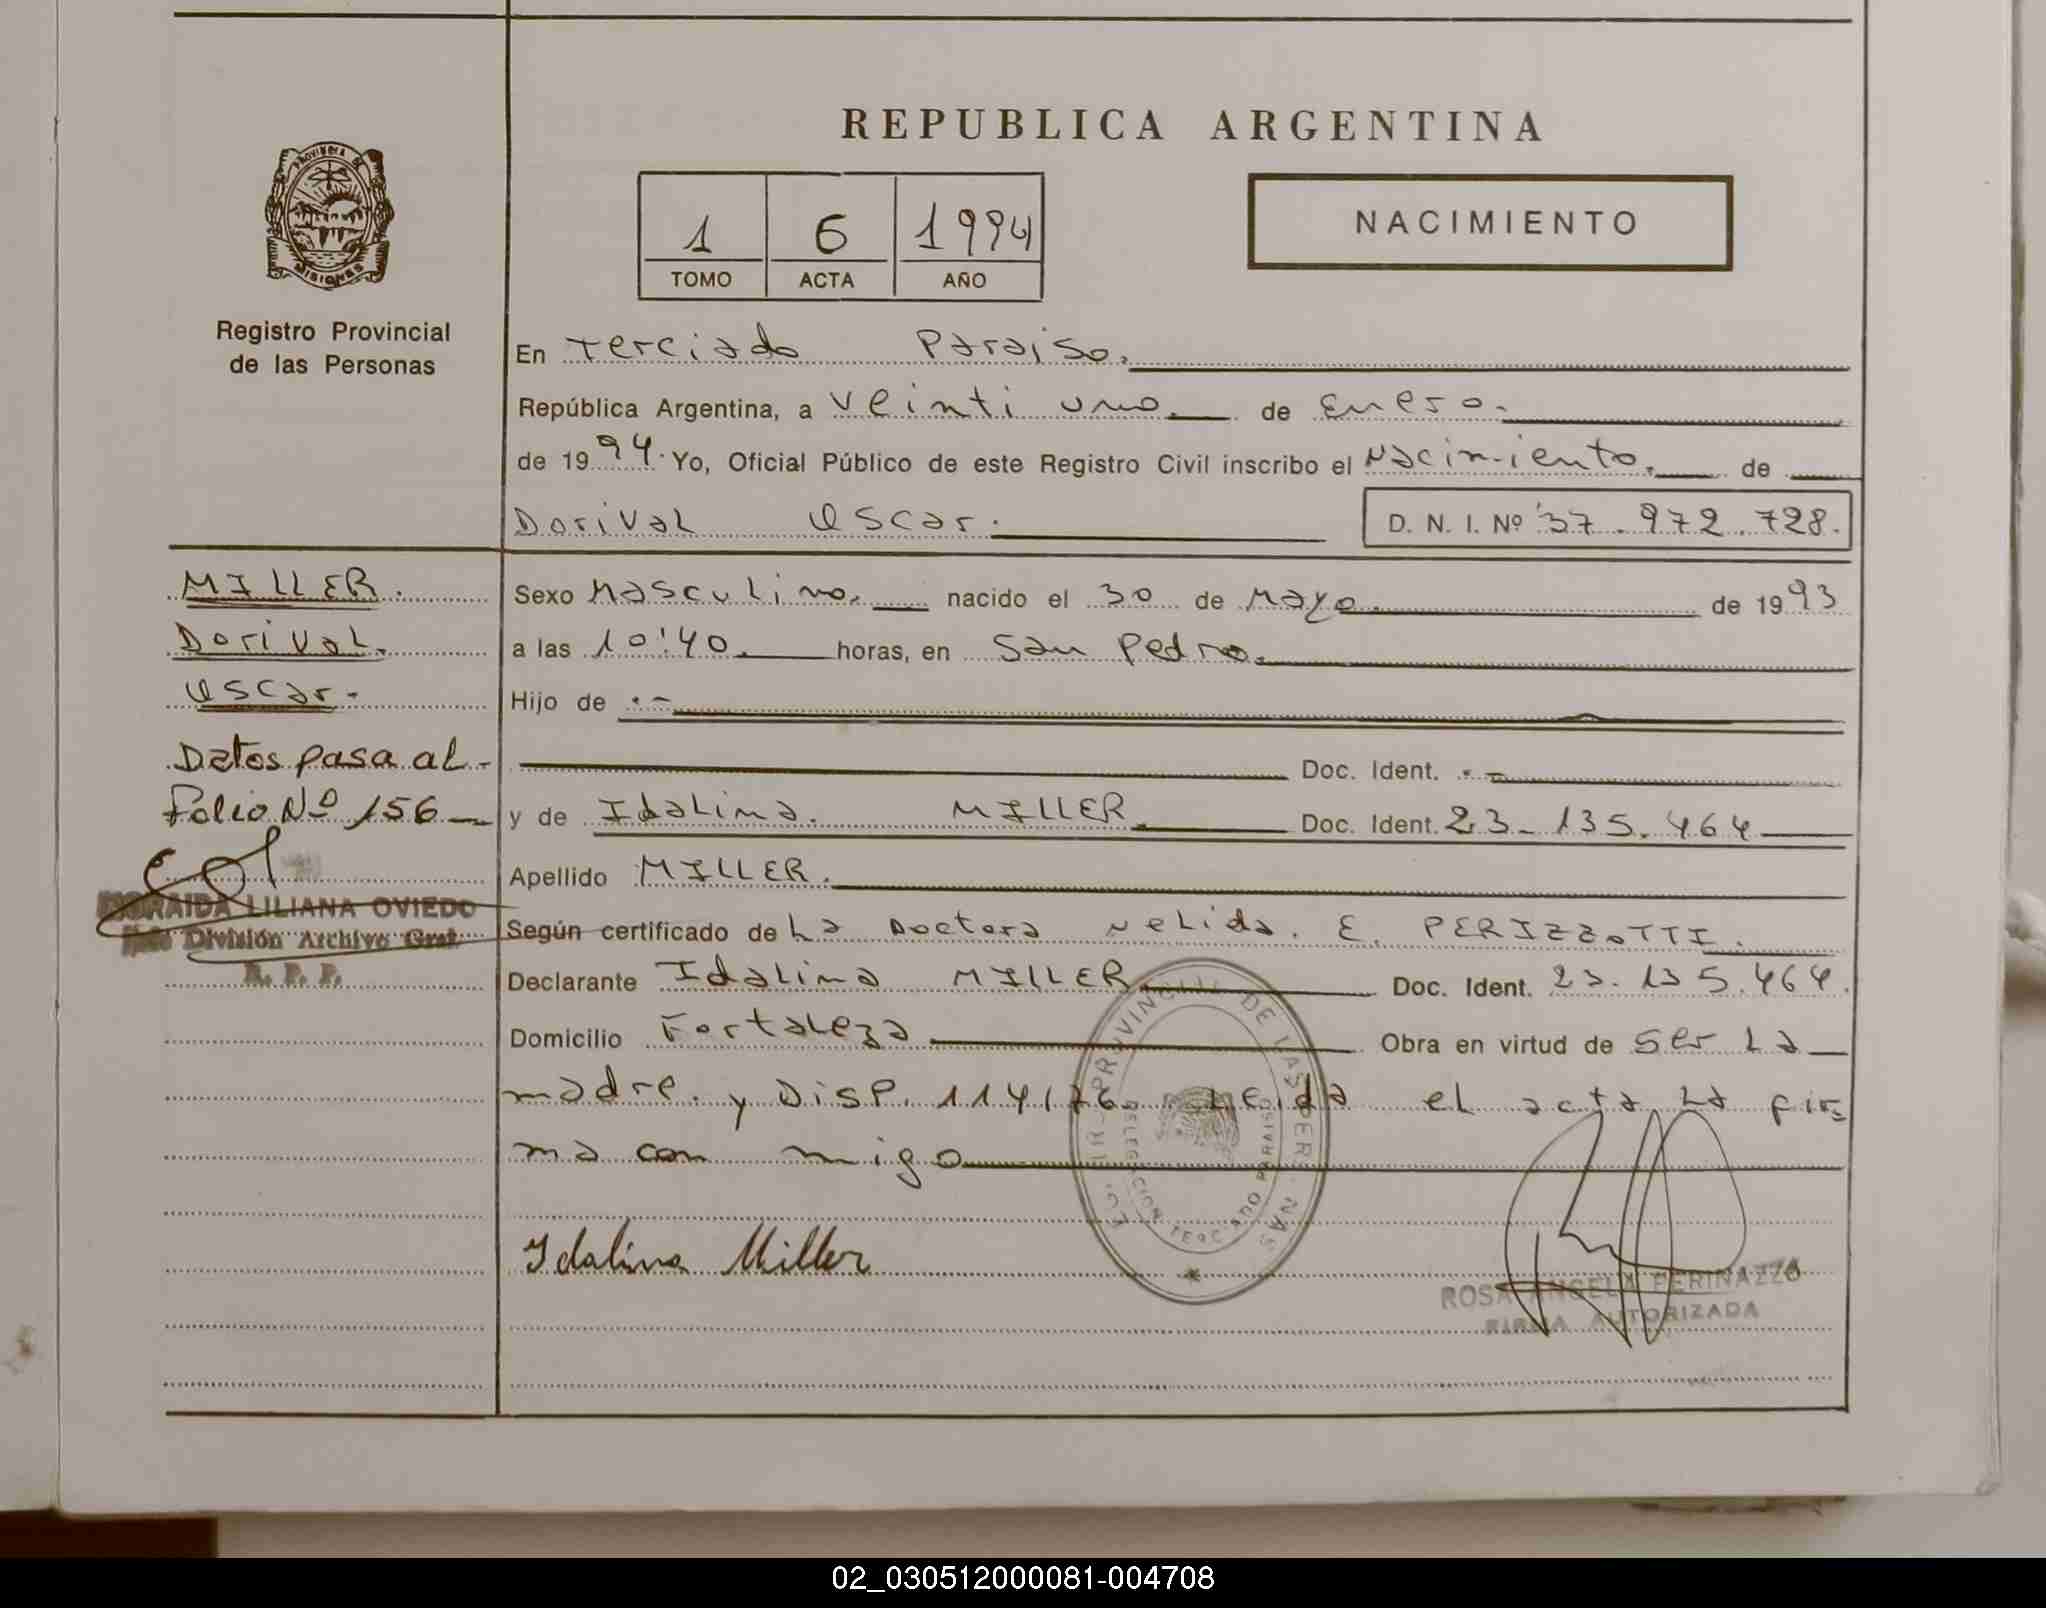 REPUBLICA ARGENTINA
PROVINCIA DE
MISIONES
Registro Provincial
de las Personas
1 6 1994
TOMO ACTA AÑO
NACIMIENTO
En Terciado Paraiso.
República Argentina, a Veinti uno. de Enero.
de 1994. Yo, Oficial Público de este Registro Civil inscribo el Nacimiento. de
Dorival Oscar. D. N. I. Nº 37.972.728.
MILLER.
Dorival.
Oscar.
Datos pasa al
Folio Nº 156
LILIANA OVIEDO
División Archivo Gral.
R. P. P.
Sexo Masculino. nacido el 30 de Mayo. de 1993
a las 10:40. horas, en San Pedro.
Hijo de
Doc. Ident.
y de Idalina. MILLER. Doc. Ident. 23.135.464
Apellido MILLER.
Según certificado de La Doctora Nelida. E. PERIZZOTTI.
Declarante Idalina MILLER Doc. Ident. 23.135.464.
Domicilio Fortaleza Obra en virtud de Ser La
madre. y DISP. 114/76. Leida el acta La fir=
ma con migo
PROVINCIAL DE LAS PERSONAS
DELEGACION TERCIADO PARAISO
Idalina Miller
ROSA ANGELA PERINAZZO
FIRMA AUTORIZADA
02_030512000081-004708